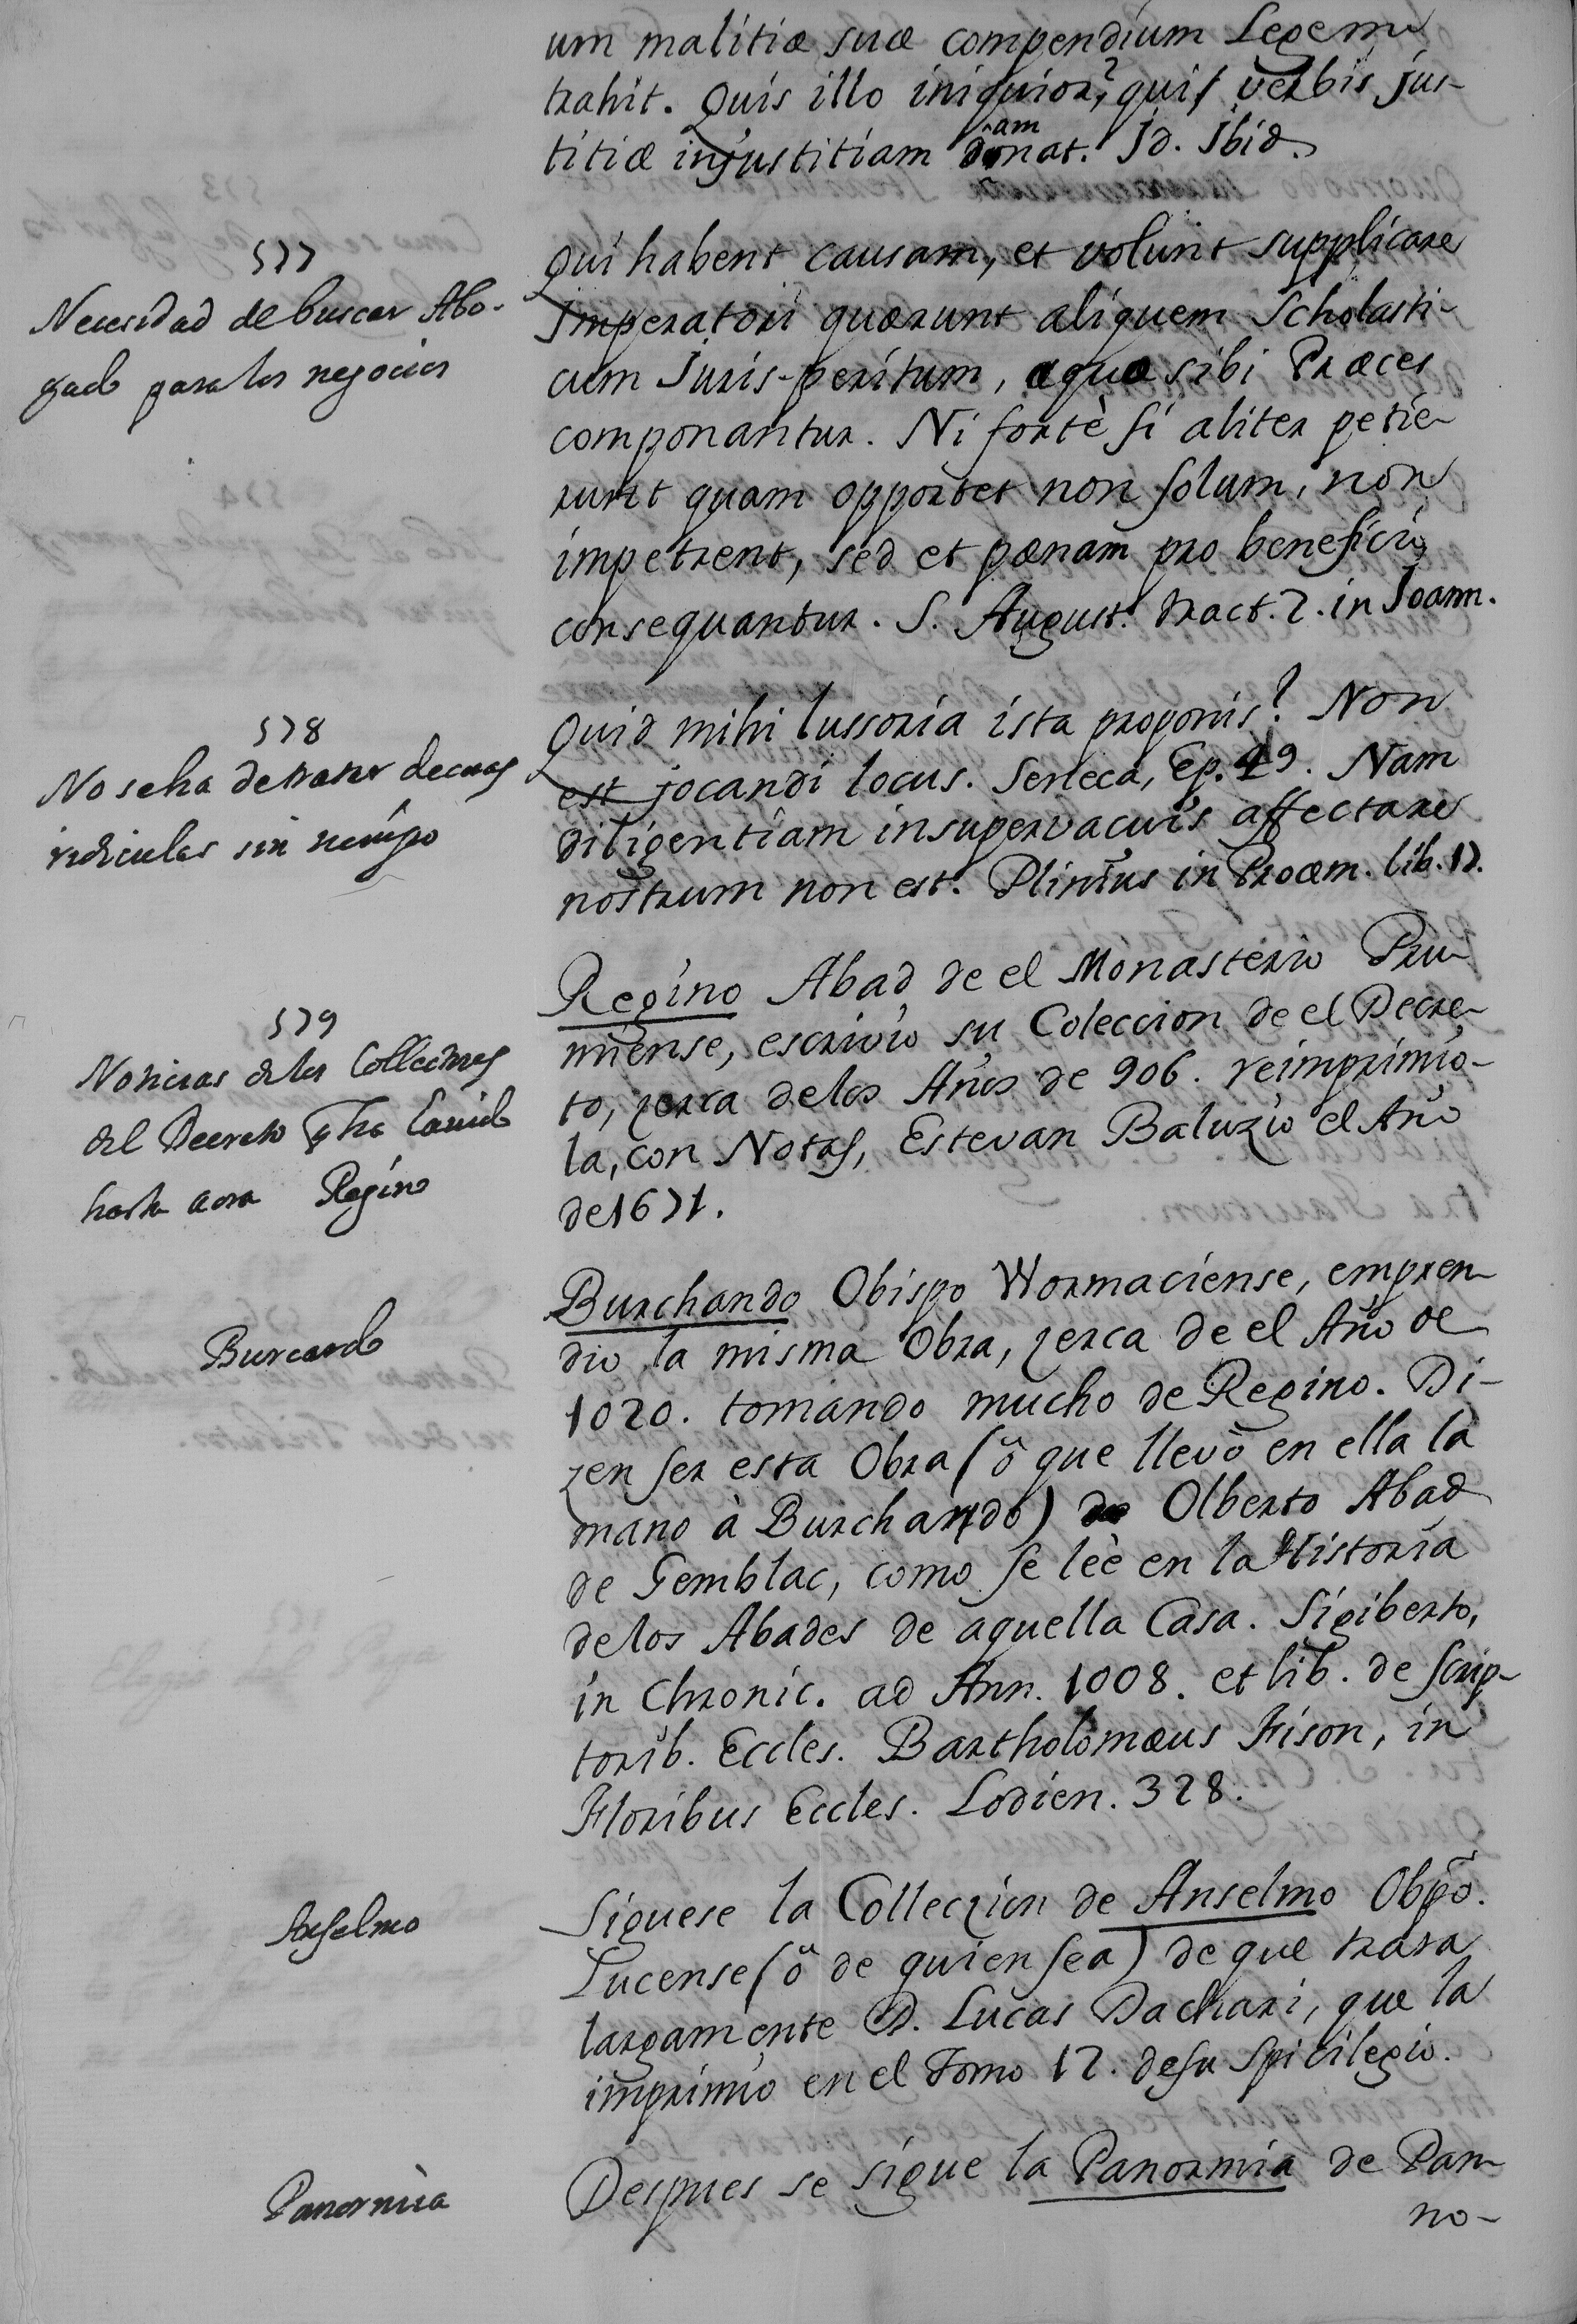 um malitiæ suæ compendium Legem
trahit. Quis illo iniquior? qui verbis jus-
titiæ injustitiam damnat. Id. Ibid.
577
Necesidad de buscar Abo-
gado para los negocios
Qui habent causam, et volunt supplicare
Imperatori quærunt aliquem Scholasti-
cum Juris-peritum, a quo sibi Præces
componantur. Ni fortè si aliter petie-
runt quam opportet non solum, non
impetrent, sed et pœnam pro beneficio
consequantur. S. August. tract. 7. in Joann.
578
No se ha de tratar de cosas
ridiculas sin tiempo
Quid mihi lussoria ista proponis? Non
est jocandi locus. Seneca, Ep. 49. Nam
diligentiam in supervacuis affectare
nostrum non est. Plinius in Proœm. lib. 17.
579
Noticias de los Collectores
del Decreto q ha havido
hasta aora Regino
Regino Abad de el Monasterio Pru-
miense, escrivio su Coleccion de el Decre-
to, zerca de los Años de 906. reimprimio-
la, con Notas, Estevan Baluzio el Año
de 1671.
Burcardo
Burchando Obispo Wormaciense, empren-
dio la misma Obra, zerca de el Año de
1020. tomando mucho de Regino. Di-
zen ser esta Obra (ô que llevò en ella la
mano à Burchardo) de Olberto Abad
de Gemblac, como se lèè en la Historia
de los Abades de aquella Casa. Sigiberto,
in Chronic. ad Ann. 1008. et lib. de Scrip-
torib. Eccles. Bartholomæus Fison, in
Floribus Eccles. Lodien. 328.
Anselmo
Siguese la Colleczion de Anselmo Obpô.
Lucense (ô de quien sea) de que trata
largamente D. Lucas Dachari, que la
imprimio en el Tomo 12. de su Spicilegio.
Panormia
Despues se sigue la Panormia de Pan-
no-